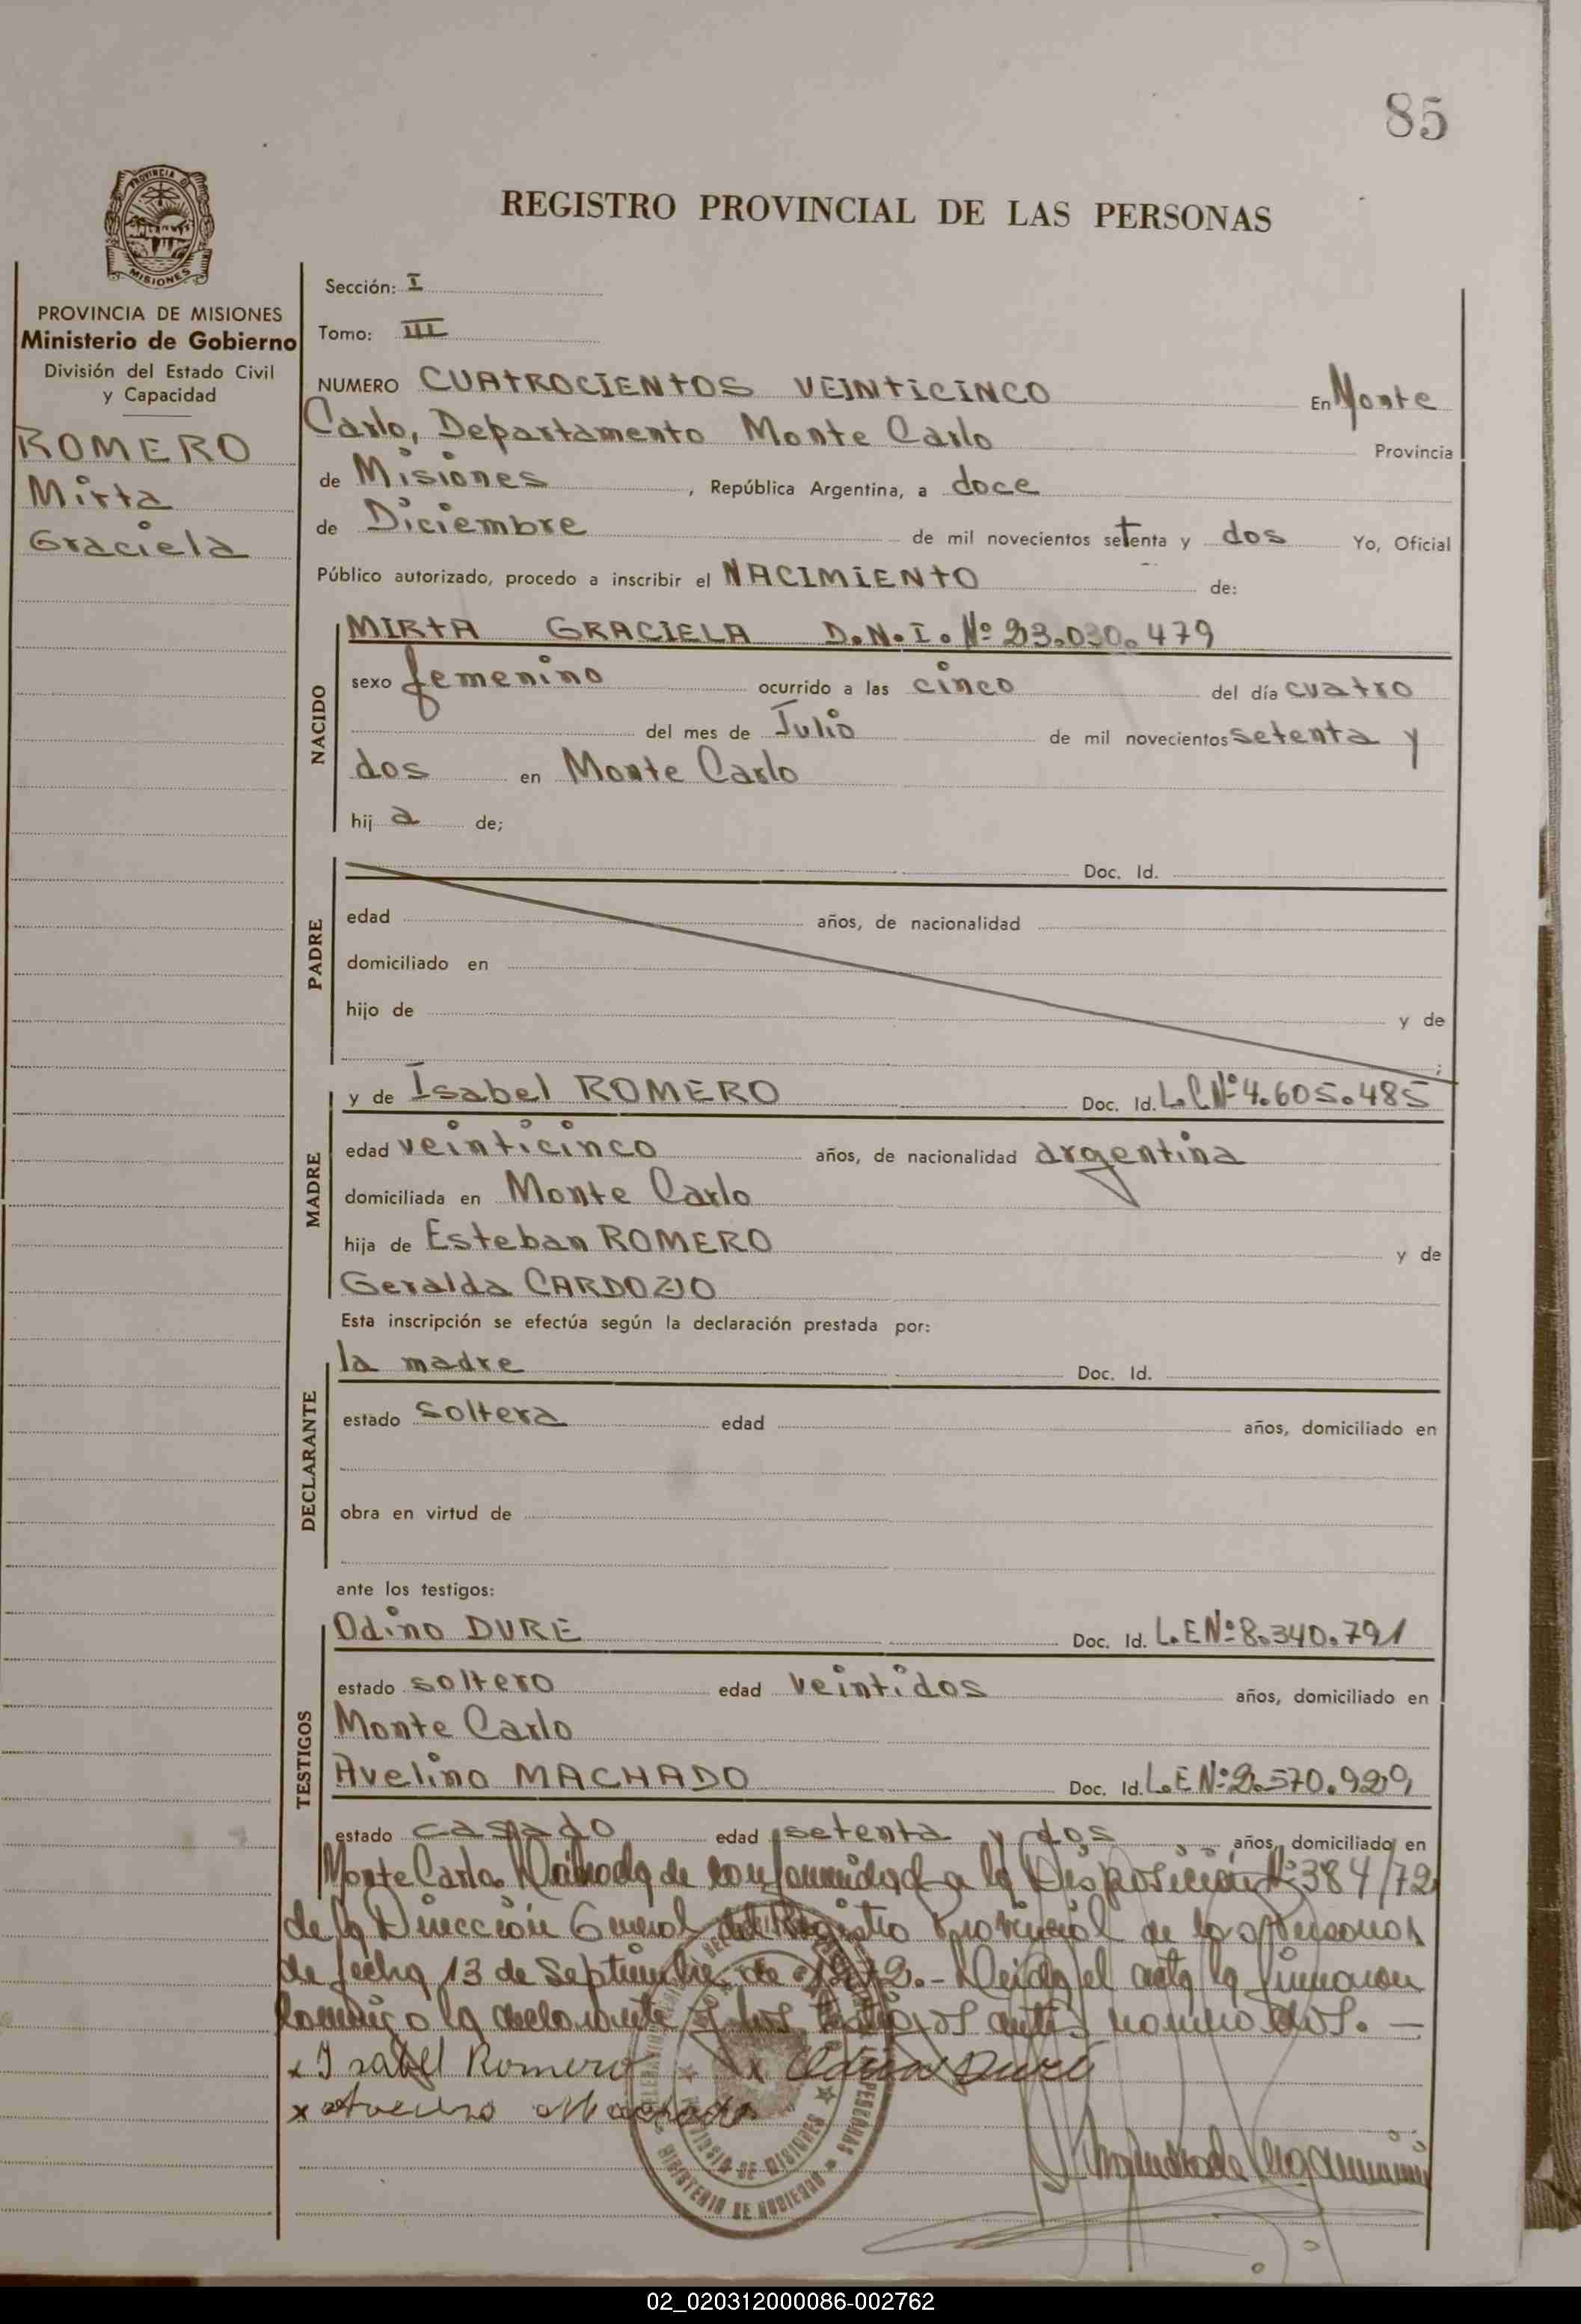 85
PROVINCIA DE
MISIONES
REGISTRO PROVINCIAL DE LAS PERSONAS
PROVINCIA DE MISIONES
Ministerio de Gobierno
División del Estado Civil
y Capacidad
ROMERO
Mirta
Graciela
Sección: I
Tomo: III
NUMERO CUATROCIENTOS VEINTICINCO En Monte
Carlo, Departamento Monte Carlo Provincia
de Misiones, República Argentina, a doce
de Diciembre de mil novecientos setenta y dos Yo, Oficial
Público autorizado, procedo a inscribir el NACIMIENTO de:
NACIDO
MIRTA GRACIELA D.N.I. Nº 23.030.479
sexo femenino ocurrido a las cinco del día cuatro
del mes de Julio de mil novecientos setenta y
dos en Monte Carlo
hij a de;
PADRE
Doc. Id.
edad años, de nacionalidad
domiciliado en
hijo de y de
;
MADRE
y de Isabel ROMERO Doc. Id. L.C Nº 4.605.485
edad veinticinco años, de nacionalidad argentina
domiciliada en Monte Carlo
hija de Esteban ROMERO y de
Geralda CARDOZO
Esta inscripción se efectúa según la declaración prestada por:
DECLARANTE
la madre Doc. Id.
estado soltera edad años, domiciliado en
obra en virtud de
ante los testigos:
TESTIGOS
Odino DURE Doc. Id. L.E Nº 8.340.791
estado soltero edad veintidos años, domiciliado en
Monte Carlo
Avelino MACHADO Doc. Id. L.E Nº 2.570.929
estado casado edad setenta y dos años, domiciliado en
Monte Carlo. de conformidad a la Disposición Nº 384/72
de la Dirección General del Registro Provincial de las Personas
de fecha 13 de Septiembre de 1972.- Leida el acta la firmaron
conmigo la declarante y los testigos antes nominados.-
x Isabel Romero x Odino Duré
x Avelino Machado
PROVINCIA DE MISIONES
MINISTERIO DE GOBIERNO
02_020312000086-002762